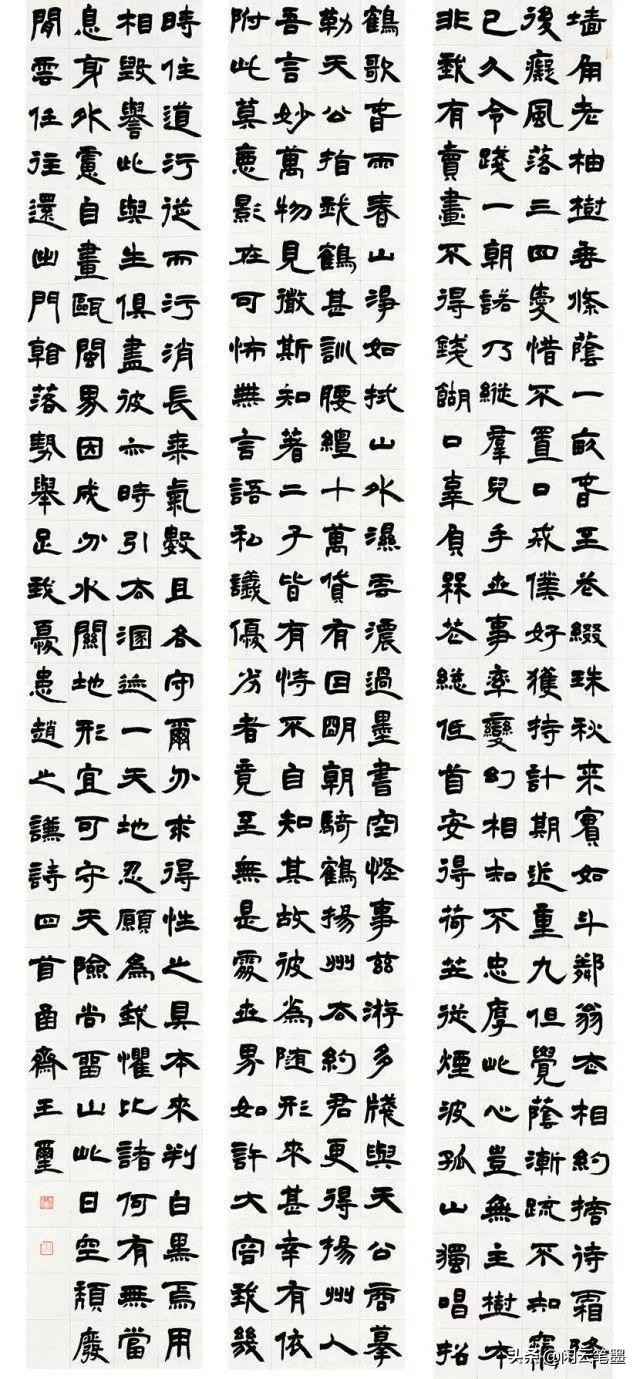 墙角老柚樹垂條蔭一畝春至花綴珠秋來實如斗鄰翁去相約摘待霜降
後癡風落三四愛惜不置口戒僕好獲持計期近重九但覺蔭漸疏不知竊
已久令踐一朝諾乃縱羣兒手世事率變幻相知不忠厚此心豈無主樹本
非我有賣畫不得錢餬口辜負羣花總低首安得荷芷從煙波孤山獨唱招
鶴歌春雨春山淨如拭山水濕雲濃過墨書空怪事茲游多牋與天公商摹
勒天公拍我鶴甚訓腰纏十萬貸有因明朝騎鶴揚州去約君更得揚州人
吾言妙萬物見徵斯知著二子皆有恃不自知其故彼為随形來甚幸有依
附此莫惡影在可怖無言語私議優劣者竟至無是處世界如許大容我幾
時住道行從而行消長乘氣數且各守爾分求得性之具本來判白黑焉用
相毀譽此與生俱盡彼亦時引去溷迹一天地忍願為我懼比諸何有無當
息身外慮自畫甌閩界因成分水關地形宜可守天險尚留山此日空頹廢
閒雲任往還出門落勢舉足我憂患趙之謙詩四首甬齋王璽
头条@闲云笔墨